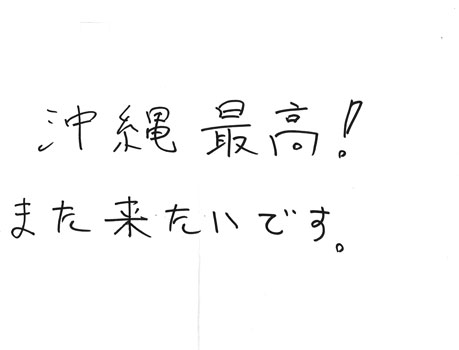 沖縄最高!
また来たいです。